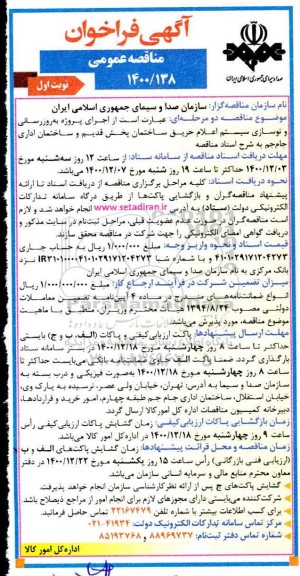 آگهی فراخوان
مناقصه عمومی
۱۴۰۰/۱۳۸
نوبت اول
صدا و سیمای جمهوری اسلامی ایران
نام سازمان مناقصه‌گزار: سازمان صدا و سیمای جمهوری اسلامی ایران
موضوع مناقصه دو مرحله‌ای: عبارت است از اجرای پروژه به‌روزرسانی
و نوسازی سیستم اعلام حریق ساختمان پخش قدیم و ساختمان اداری
جام‌جم به شرح اسناد مناقصه
مهلت دریافت اسناد مناقصه از سامانه ستاد: از ساعت ۱۲ روز سه‌شنبه مورخ
۱۴۰۰/۱۲/۰۳ حداکثر تا ساعت ۱۹ روز شنبه مورخ ۱۴۰۰/۱۲/۰۷ می‌باشد.
نحوه دریافت اسناد: کلیه مراحل برگزاری مناقصه از دریافت اسناد تا ارائه
پیشنهاد مناقصه‌گران و بازگشایی پاکت‌ها از طریق درگاه سامانه تدارکات
الکترونیکی دولت (ستاد) به آدرس www.setadiran.ir انجام خواهد شد و لازم
است مناقصه‌گران در صورت عدم عضویت قبلی، مراحل ثبت‌نام در سایت مذکور و
دریافت گواهی امضای الکترونیکی را جهت شرکت در مناقصه محقق سازند.
قیمت اسناد و نحوه واریز وجه: مبلغ ۱/۰۰۰/۰۰۰ ریال به حساب جاری
۴۱۰۱۰۲۹۱۷۱۲۰۴۲۷۳ و با شماره شبا IR۳۱۰۱۰۰۰۰۴۱۰۱۰۲۹۱۷۱۲۰۴۲۷۳ نزد
بانک مرکزی به نام سازمان صدا و سیمای جمهوری اسلامی ایران
میزان تضمین شرکت در فرآیند ارجاع کار: مبلغ ریال
انواع ضمانت‌نامه‌های مندرج در ماده آیین‌نامه تضمین معاملات
دولتی مصوب ۱۳۹۴/۸/۲۴ هیأت محترم وزیران، متعلق با ماهیت
موضوع مناقصه مورد پذیرش می‌باشد
مهلت ارسال پیشنهادها: پاکت ارزیابی کیفی و پاکات (الف، ب و ج) بایستی
حداکثر تا ساعت ۸ روز چهارشنبه مورخ ۱۴۰۰/۱۲/۱۸ در سامانه ستاد
بارگذاری گردد. ضمنا پاکت الف حاوی ضمانت‌نامه بانکی می‌بایست حداکثر تا
ساعت ۸ روز چهارشنبه مورخ ۱۴۰۰/۱۲/۱۸ به‌صورت فیزیکی و درب بسته به
سازمان صدا و سیما به آدرس: تهران، خیابان ولی عصر، نرسیده به پارک وی،
خیابان استقلال، ساختمان اداری جام جم طبقه چهارم، امور خرید و قراردادها،
دبیرخانه کمیسیون مناقصات اداره کل امور کالا ارسال گردد.
زمان بازگشایی پاکات ارزیابی کیفی: زمان گشایش پاکات ارزیابی کیفی رأس
ساعت ۹ روز چهارشنبه مورخ ۱۴۰۰/۱۲/۱۸ در اداره کل امور کالا می‌باشد.
زمان مناقصه و محل قرائت پیشنهادها: زمان گشایش پاکت‌های الف و ب
(ارزیابی فنی بازرگانی) رأس ساعت ۱۵ روز یکشنبه مورخ ۱۴۰۰/۱۲/۲۲ در دفتر
معاون محترم منابع مالی و سرمایه انسانی سازمان می‌باشد.
گشایش پاکت‌های ج پس از ارائه نظر کارشناسی سازمان انجام خواهد پذیرفت.
شرکت‌کننده می‌بایستی دارای مجوزهای لازم برای انجام امور از مراجع ذیصلاح باشد.
برای کسب اطلاعات بیشتر با شماره تلفن ۲۲۱۶۷۴۷۹ تماس حاصل فرمایید.
مرکز تماس سامانه تدارکات الکترونیک دولت: ۴۱۹۳۴-۰۲۱
شماره تماس دفتر ثبت‌نام: ۸۸۹۶۹۷۳۷ و ۸۵۱۹۳۷۶۸
اداره کل امور کالا